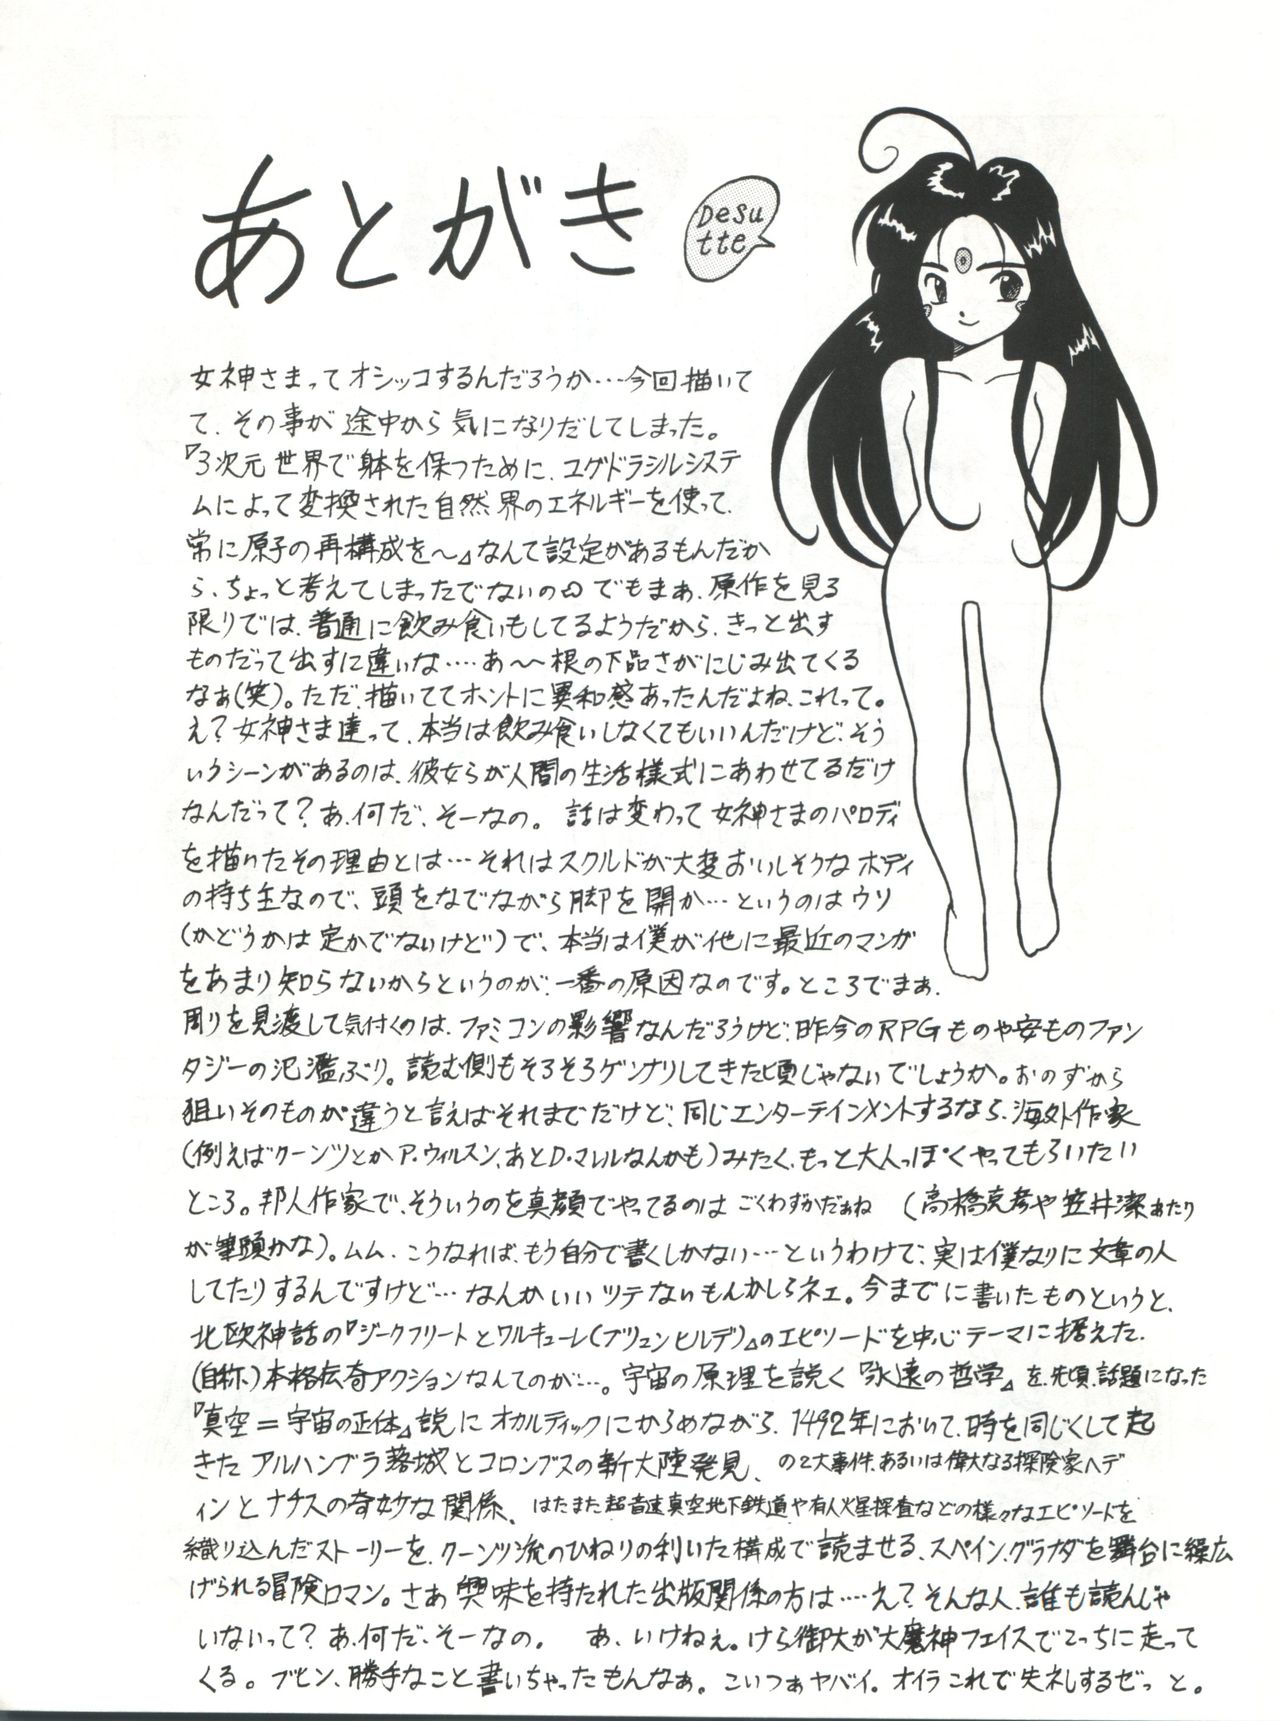 あとがき
Desu
tte
女神さまってオシッコするんだろうか…今回描いて
て、その事が途中から気になりだしてしまった。
『3次元世界で躰を保つために、ユグドラシルシステ
ムによって変換された自然界のエネルギーを使って、
常に原子の再構成を〜』なんて設定があるもんだか
ら、ちょっと考えてしまったでないの でもまぁ、原作を見る
限りでは、普通に飲み食いもしてるようだから、きっと出す
ものだって出すに違いな‥‥あ〜〜根の下品さがにじみ出てくる
なぁ(笑)。ただ、描いててホントに異和感あったんだよね、これって。
え?女神さま達って、本当は飲み食いしなくてもいいんだけど、そう
いうシーンがあるのは、彼女らが人間の生活様式にあわせてるだけ
なんだって?あ、何だ、そーなの。 話は変わって女神さまのパロディ
を描いたその理由とは…それはスクルドが大変おいしそうなボディ
の持ち主なので、頭をなでながら脚を開か…というのはウソ
(かどうかは定かでないけど)で、本当は僕が他に最近のマンガ
をあまり知らないからというのが、一番の原因なのです。ところでまぁ、
周りを見渡して気付くのは、ファミコンの影響なんだろうけど、昨今のRPGものや安ものファン
タジーの氾濫ぶり。読む側もそろそろゲンナリしてきた頃じゃないでしょうか。おのずから
狙いそのものが違うと言えばそれまでだけど、同じエンターテインメントするなら、海外作家
(例えばクーンツとかP・ウィルスン、あとD・マレルなんかも)みたく、もっと大人っぽくやってもらいたい
ところ。邦人作家で、そういうのを真顔でやってるのは ごくわずかだぁね (高橋克彦や笠井潔あたり
が筆頭かな)。ムム、こうなれば、もう自分で書くしかない…というわけで、実は僕なりに文章の人
してたりするんですけど…なんかいいツテないもんかしらネェ。今までに書いたものというと、
北欧神話の『ジークフリートとワルキューレ(ブリュンヒルデ)』のエピソードを中心テーマに据えた、
(自称)本格伝奇アクションなんてのが…。宇宙の原理を説く『永遠の哲学』を、先頃、話題になった
『真空=宇宙の正体』説にオカルティックにからめながら、1492年において、時を同じくして起
きたアルハンブラ落城とコロンブスの新大陸発見、の2大事件、あるいは偉大なる探険家ヘデ
ィンとナチスの奇妙な関係、はたまた超音速真空地下鉄道や有人火星探査などの様々なエピソードを
織り込んだストーリーを、クーンツ流のひねりの利いた構成で読ませる、スペイン、グラナダを舞台に繰広
げられる冒険ロマン。さぁ興味を持たれた出版関係の方は‥‥え?そんな人、誰も読んじゃ
いないって?あ、何だ、そーなの。 あ、いけねぇ。けら御大が大魔神フェイスでこっちに走って
くる。ブヒン、勝手なこと書いちゃったもんなぁ。こいつぁヤバイ。オイラこれで失礼するぜっと。